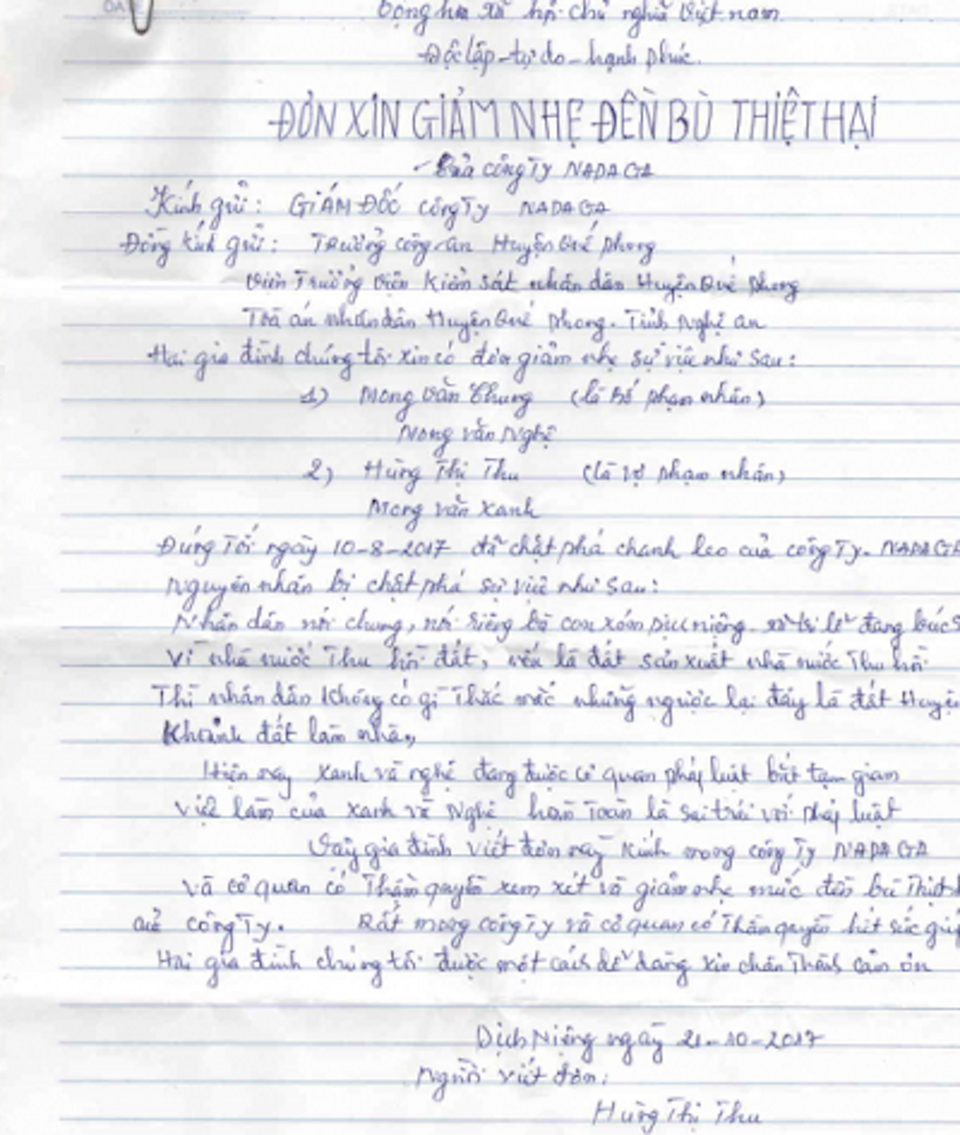 Cộng hòa xã hội chủ nghĩa Việt nam
Độc lập - tự do - hạnh phúc.
ĐƠN XIN GIẢM NHẸ ĐỀN BÙ THIỆT HẠI
Của công Ty NADAGA
Kính gửi: GIÁM ĐỐC công Ty NADAGA
Đồng kính gửi: Trưởng công an Huyện Quế phong
Viện Trưởng viện kiểm sát nhân dân Huyện Quế phong
Toà án nhân dân Huyện Quế phong. Tỉnh Nghệ an
Hai gia đình chúng tôi xin có đơn giảm nhẹ sự việc như sau:
1) Mong Văn Chung (là bố phạm nhân)
Mong văn Nghệ
2) Hùng Thị Thu (là vợ phạm nhân)
Mong văn xanh
Đứng Tối ngày 10-8-2017 đã chặt phá chanh leo của công Ty. NADAGA
Nguyên nhân bị chặt phá sự việc như sau:
Nhân dân nói chung, nói riêng bà con xóm niệng. xã tri lễ đang bức
Vì nhà nước Thu hồi đất, nếu là đất sản xuất nhà nước Thu hồi
Thì nhân dân không có gì Thắc mắc nhưng ngược lại đây là đất Huyện
Khoanh đất làm nhà,
Hiện nay xanh và nghệ đang được cơ quan pháp luật bắt tạm giam
việc làm của xanh và Nghệ hoàn Toàn là sai trái với pháp luật
Vậy gia đình viết đơn này kính mong công Ty NADAGA
và cơ quan có Thẩm quyền xem xét và giảm nhẹ mức đền bù Thiệt
công Ty. Rất mong công Ty và cơ quan có Thẩm quyền hết sức giúp
Hai gia đình chúng tôi được một cách dễ dàng xin chân Thành cảm ơn
Dịch Niệng ngày 21-10-2017
Người viết đơn:
Hùng Thị Thu